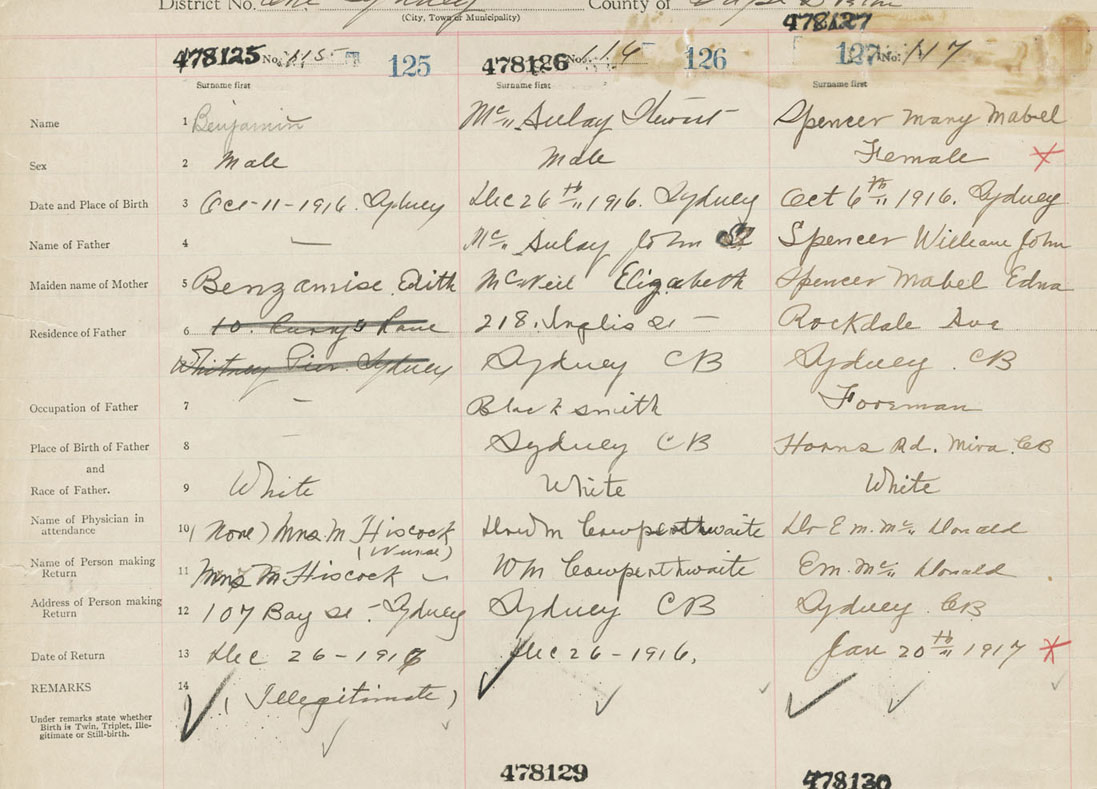 District No. One Sydney County of Cape Breton
(City, Town or Municipality)
478127
478125 No. 115 125 478126 No. 116 126 127 No: 117
Surname first Surname first Surname first
Name 1 Benjamin Mc Aulay Spencer Mary Mabel
Sex 2 Male Male Female
Date and Place of Birth 3 Oct-11-1916. Sydney Dec 26th 1916. Sydney Oct 6th 1916. Sydney
Name of Father 4 — Mc Aulay John Spencer William John
Maiden name of Mother 5 Edith McNeil Elizabeth Spencer Mabel Edna
Residence of Father 6 10. Curry's Lane 218. Inglis St — Rockdale Ave
Whitney Pier Sydney Sydney CB Sydney. CB
Occupation of Father 7 — Blacksmith Foreman
Place of Birth of Father 8 — Sydney CB Horns Rd. Mira. CB
and
Race of Father. 9 White White White
Name of Physician in
attendance 10 (None) Mrs. M Hiscock Cowperthwaite Dr E M. Mc Donald
(Nurse)
Name of Person making
Return 11 Mrs M Hiscock WM Cowperthwaite E M. Mc Donald
Address of Person making
Return 12 107 Bay St - Sydney Sydney CB Sydney. CB
Date of Return 13 Dec 26-1916 Dec 26-1916, Jan 20th 1917
REMARKS 14 (Illegitimate)
Under remarks state whether
Birth is Twin, Triplet, Ille-
gitimate or Still-birth.
478129 478130